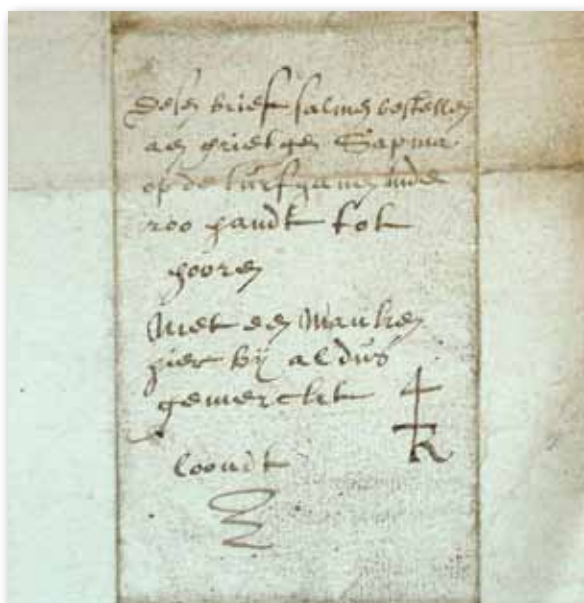 desen brief salmen bestellen
aen grietgen Sapma
op de turfhaven inde
roo handt tot
hooren
Met een Manken
hier bij aldus
gemerckt
loondt